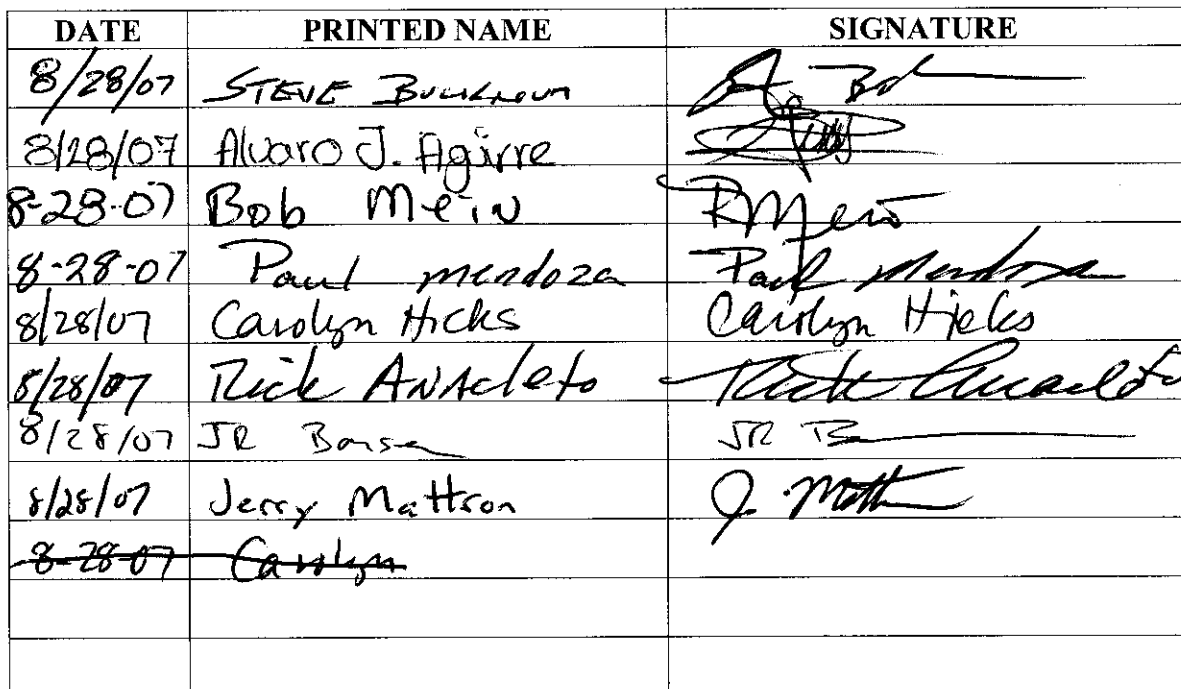 DATE PRINTED NAME SIGNATURE
8/28/07 STEVE
8/28/07 Alvaro J. Agirre
8-28-07 Bob Mein R Mein
8-28-07 Paul mendoza Paul Mendoza
8/28/07 Carolyn Hicks Carolyn Hicks
8/28/07 Rick ANAcleto Rick Anacleto
8/28/07 JR JR
8/28/07 Jerry Mattson J. Matt
8-28-07 Carolyn